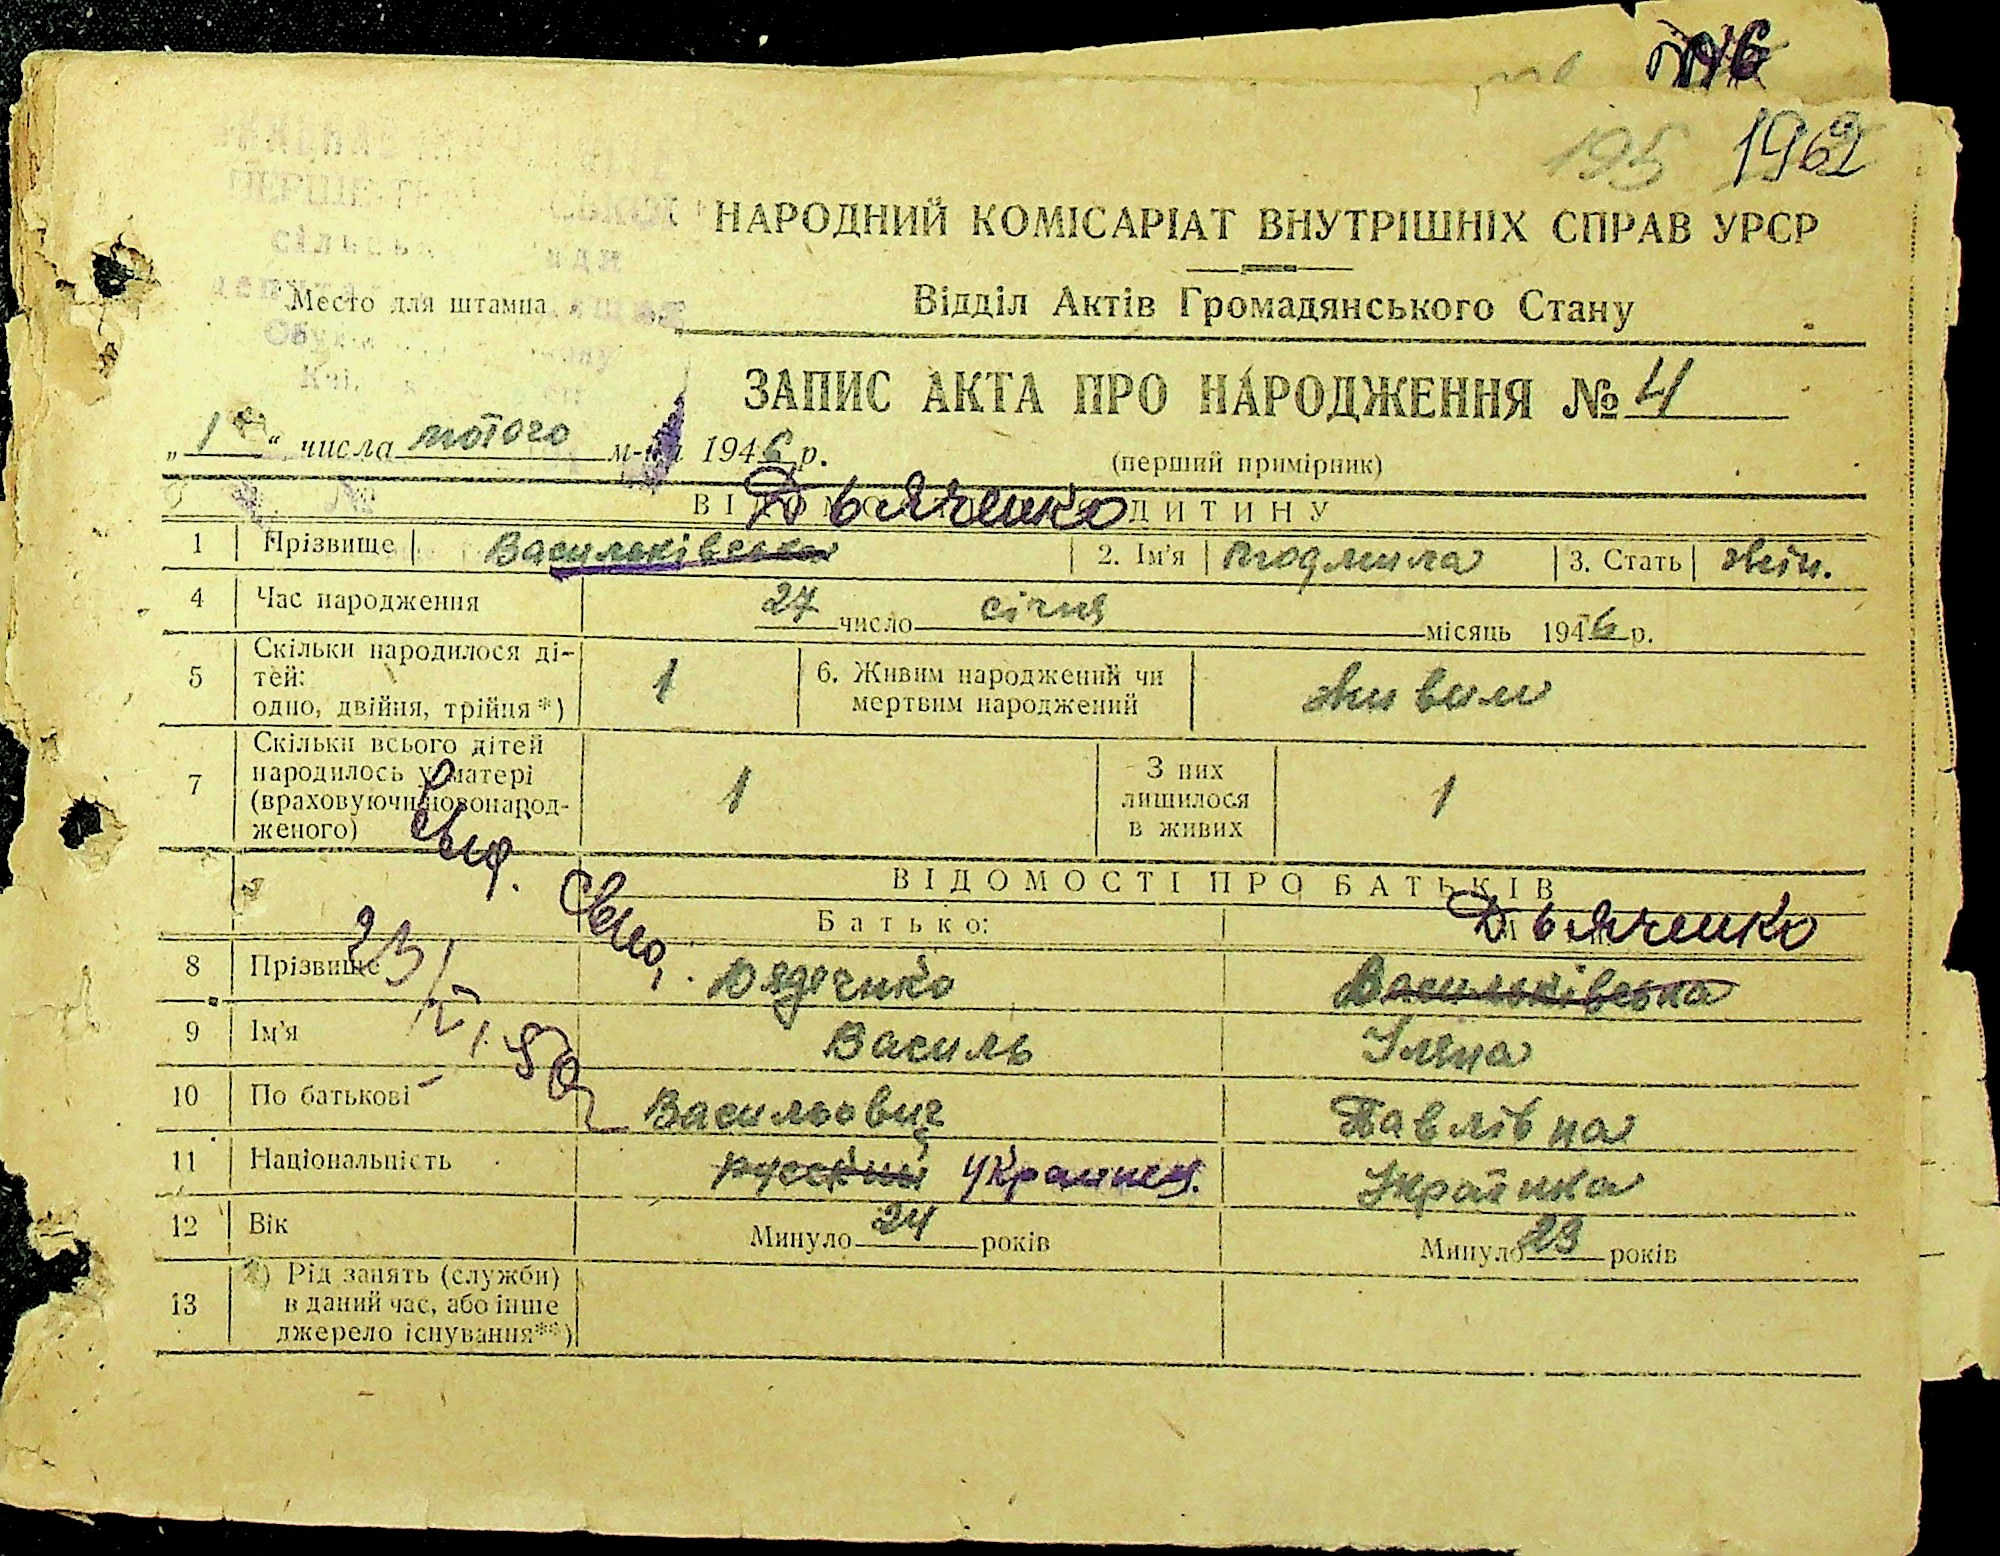 195 1962
НАРОДНИЙ КОМІСАРІАТ ВНУТРІШНІХ СПРАВ УРСР
Место для штампа
Відділ Актів Громадянського Стану
ЗАПИС АКТА ПРО НАРОДЖЕННЯ № 4
„1“ числа лютого м-ця 1946 р.
(перший примірник)
ДИТИНУ
Дьяченко
1 Прізвище Васильківська 2. Ім'я Людмила 3. Стать жін.
4 Час народження 27 число січня місяць 1946 р.
5 Скільки народилося ді-
тей:
одно, двійня, трійня*) 1 6. Живим народжений чи
мертвим народжений живим
7 Скільки всього дітей
народилось у матері
(враховуючи новонарод-
женого) 1 З них
лишилося
в живих 1
ВІДОМОСТІ ПРО БАТЬКІВ
Батько: Дьяченко
8 Прізвище Васильківська
9 Ім'я Василь Уляна
10 По батькові Васильович Павлівна
11 Національність русский украинец. Українка
12 Вік Минуло 24 років Минуло 23 років
13 Рід занять (служби)
в даний час, або інше
джерело існування**)